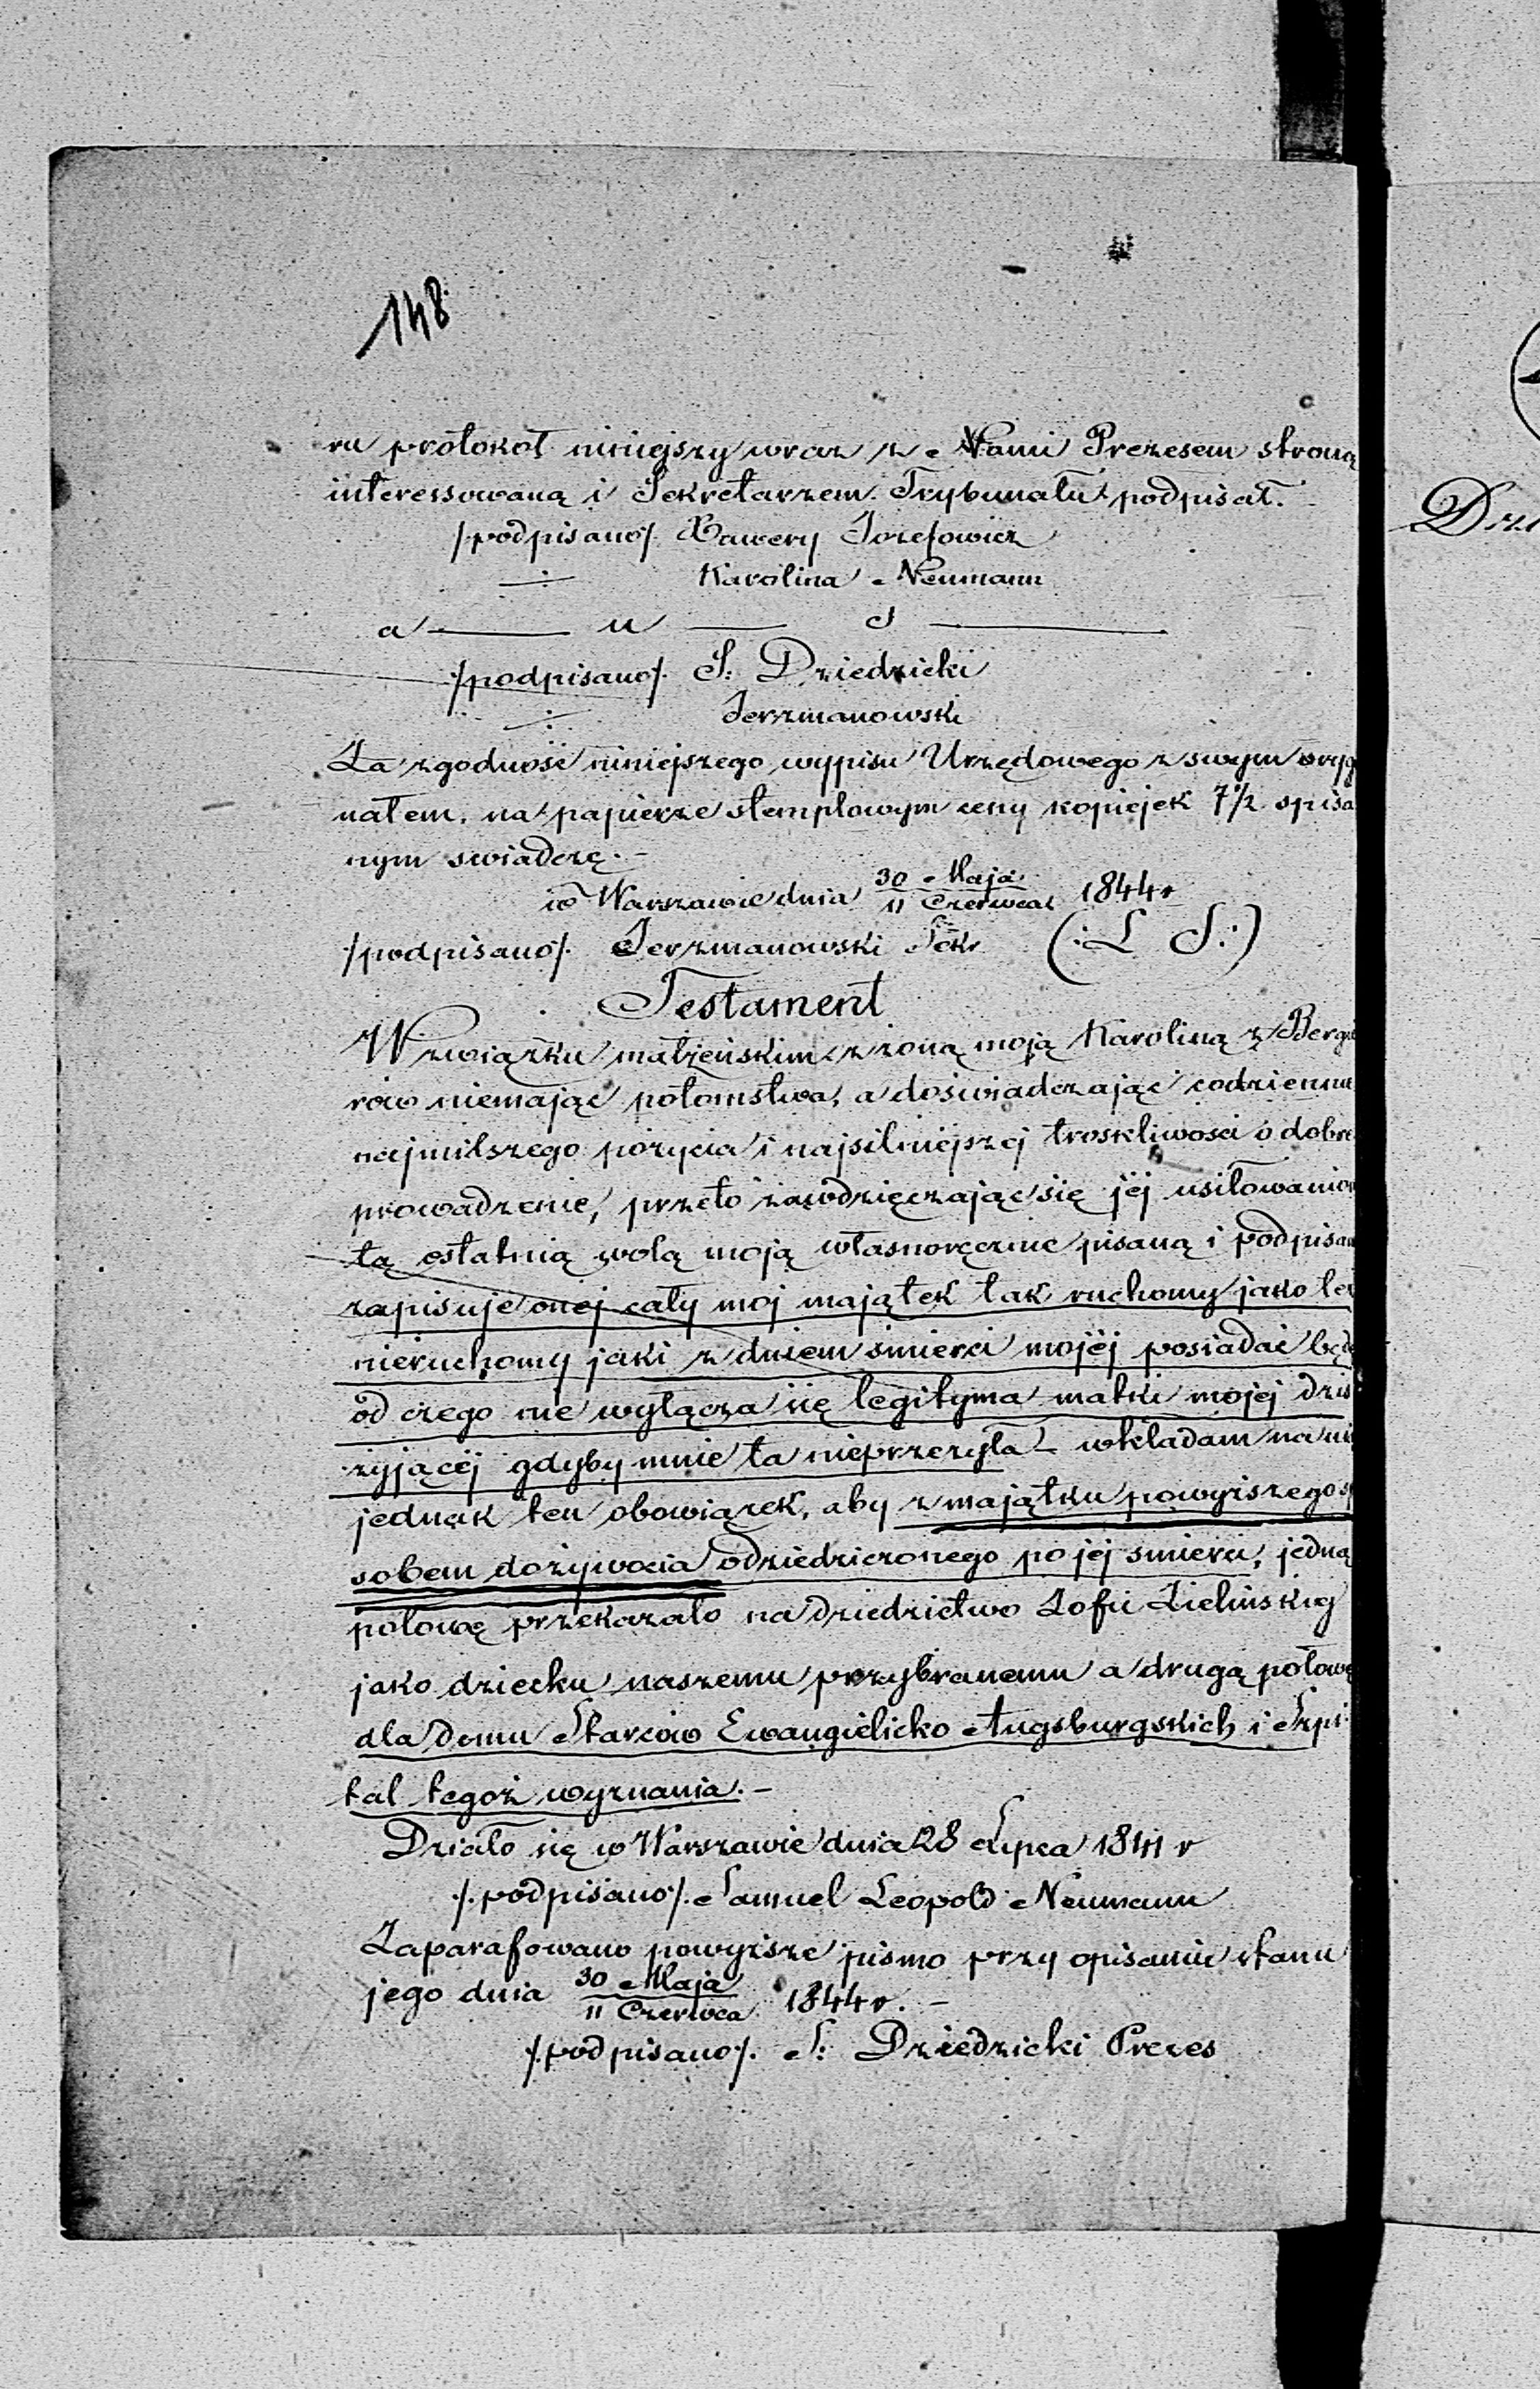 148
ru protokoł niniejszy wraz z Nami Prezesem stroną
interessowaną i Sekretarzem Trybunału podpisał.
/podpisano/. Xawery Jozefowicz
Karolina Neumann
a u S
/podpisano/. S: Dziedzicki
Jerzmanowski
Za zgodność niniejszego wypisu Urzędowego z swym oryg
nałem, na papierze stemplowym ceny kopiejek 7½ spisa
nym swiadczę.-
w Warszawie dnia 30 Maja / 11 Czerwca 1844 r
/podpisano/. Jerzmanowski Sekr (: L S :)
Testament
W związku małżeńskim z żoną moją Karoliną z Berge
rów niemając potomstwa, a doświadczając codziennie
najmilszego pożycia i najsilniejszej troskliwości o dobre
prowadzenie, przeto zawdzięczając się jej usiłowaniom
tą ostatnią wolą moją własnoręcznie pisaną i podpisan
zapisuje onej cały moj majątek tak ruchomy jako też
nieruchomy jaki z dniem śmierci mojej posiadać będę
od czego nie wyłącza się legityma matki mojej dziś
żyjącej gdyby mnie ta nieprzeżyła - wkładam na nią
jednak ten obowiązek, aby z majątku powyższego sp
sobem dożywocia odziedziczonego po jej śmierci, jedną
połowę przekazało na dziedzictwo Zofii Zielińskiej
jako dziecku naszemu przybranemu a drugą połowę
dla Domu Starców Ewangielicko Augsburgskich i Szpi
tal tegoż wyznania.-
Działo się w Warszawie dnia 28 Lipca 1841 r
/.podpisano/. Samuel Leopold Neumann
Zaparafowano powyższe pismo przy opisaniu stanu
jego dnia 30 Maja / 11 Czerwca 1844 r. -
/.podpisano/. S: Dziedzicki Prezes